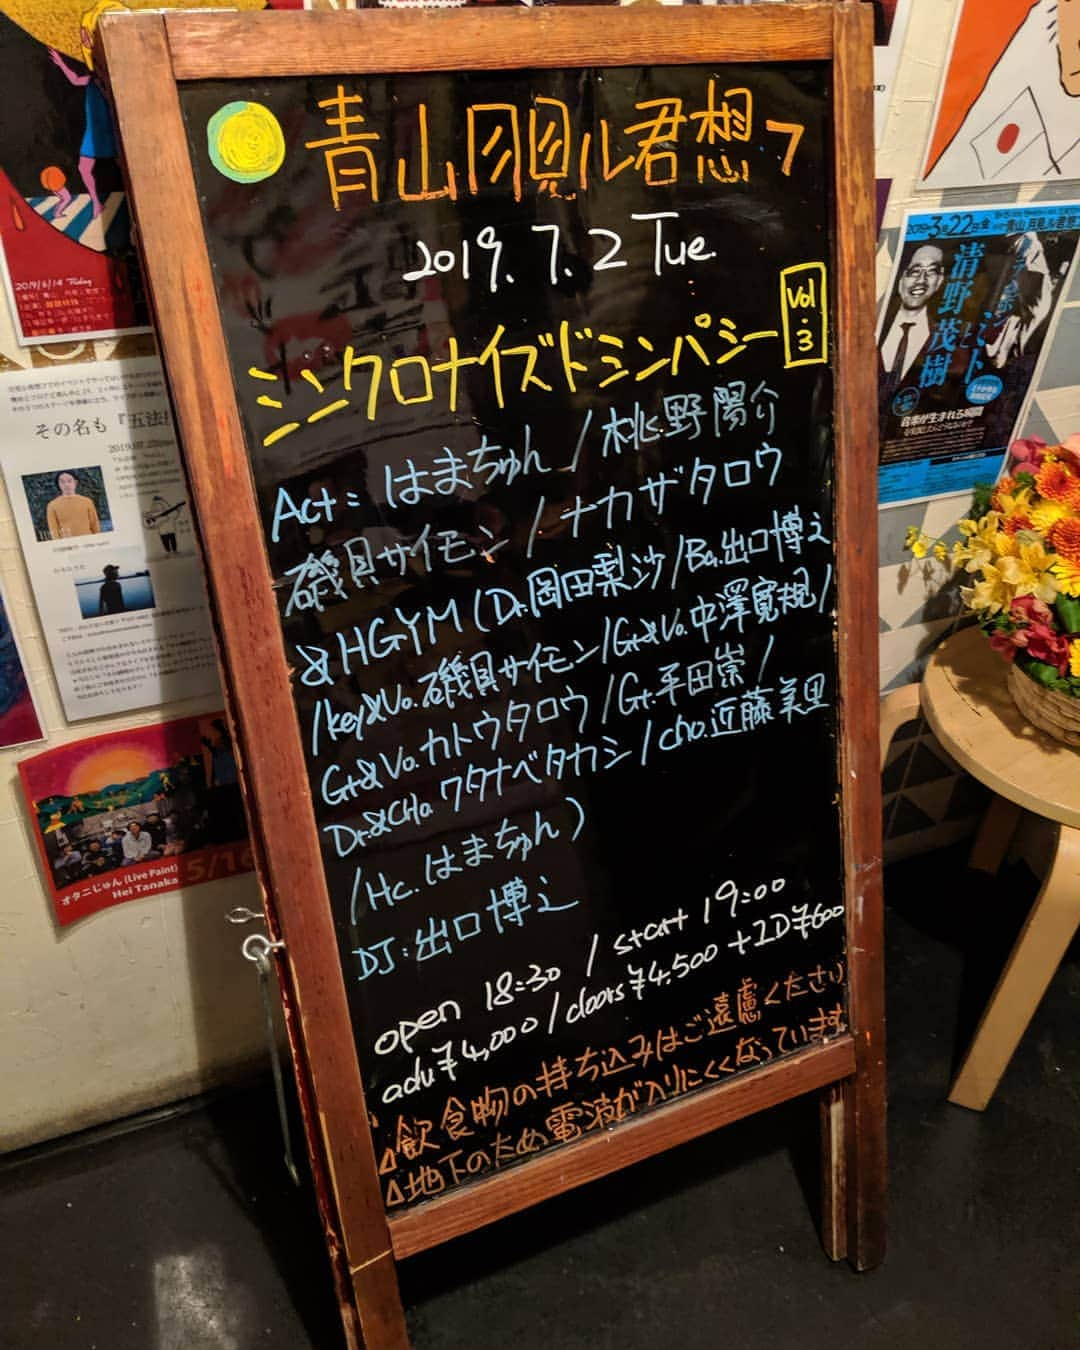 青山月見ル君想フ
2019.7.2 Tue.
シンクロナイズドシンパシー Vol.3
Act: はまちゅん / 桃野陽介
磯貝サイモン / ナカザタロウ
& HGYM (Dr.岡田梨沙 / Ba.出口博之
/ Key&Vo.磯貝サイモン / Gt&Vo.中澤寛規 /
Gt&Vo.カトウタロウ / Gt.平田崇 /
Dr&CHo.ワタナベタカシ / cho.近藤美里
/ Hc.はまちゅん)
DJ:出口博之
open 18:30 / start 19:00
adv ¥4,000 / doors ¥4,500 + 1D ¥600
△飲食物の持ち込みはご遠慮ください
△地下のため電波が入りにくくなっています
2019/6/14 Friday
その名も『五法
オタニじゅん (Live Paint)
Hei Tanaka
5/1
2019年3月22日(金)
青山 月見ル君想フ
清野茂樹
と
ミト
音楽が生まれる瞬間